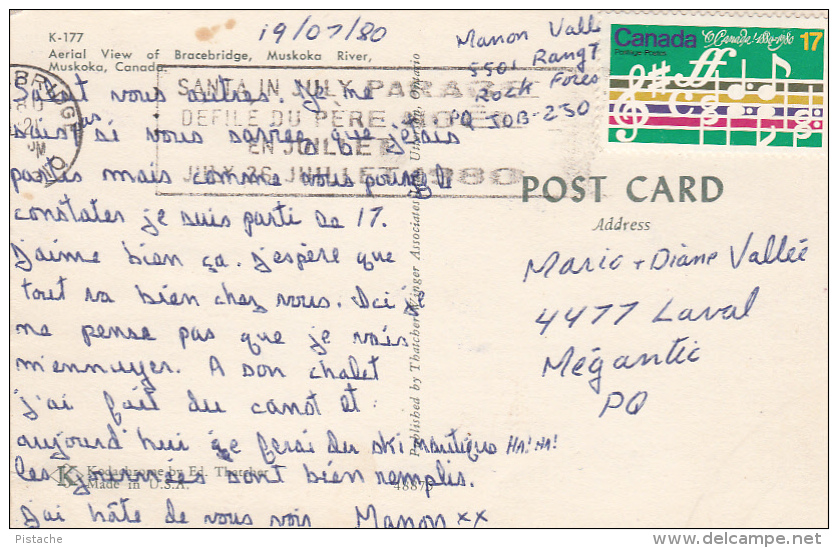 K-177
Aerial View of Bracebridge, Muskoka River,
Muskoka, Canada.
19/07/80
Manon Vallée
5501 Rang 7
Rock Fores
PQ JOB-2JO
Canada
Postage Postes
17
SANTA IN JULY PARADE
DEFILE DU PÈRE NOËL
EN JUILLET
JULY 26 JUILLET 1980
Salut vous autres. Je ne
sais pas si vous savez que j'étais
partis mais comme vous pouvez le
constater je suis parti le 17.
J'aime bien ça. J'espère que
tout va bien chez vous. Ici je
ne pense pas que je vais
m'ennuyer. A son chalet
j'ai fait du canot et
aujourd'hui je ferai du ski nautique HA! HA!
les journées sont bien remplis.
J'ai hâte de vous voir Manon xx
Kodachrome by Ed. Thatcher
Made in U.S.A.
48875
Published by Thatcher/Winger Associates Ontario
POST CARD
Address
Mario + Diane Vallée
4477 Laval
Mégantic
PQ
Pistache
www.delcampe.net